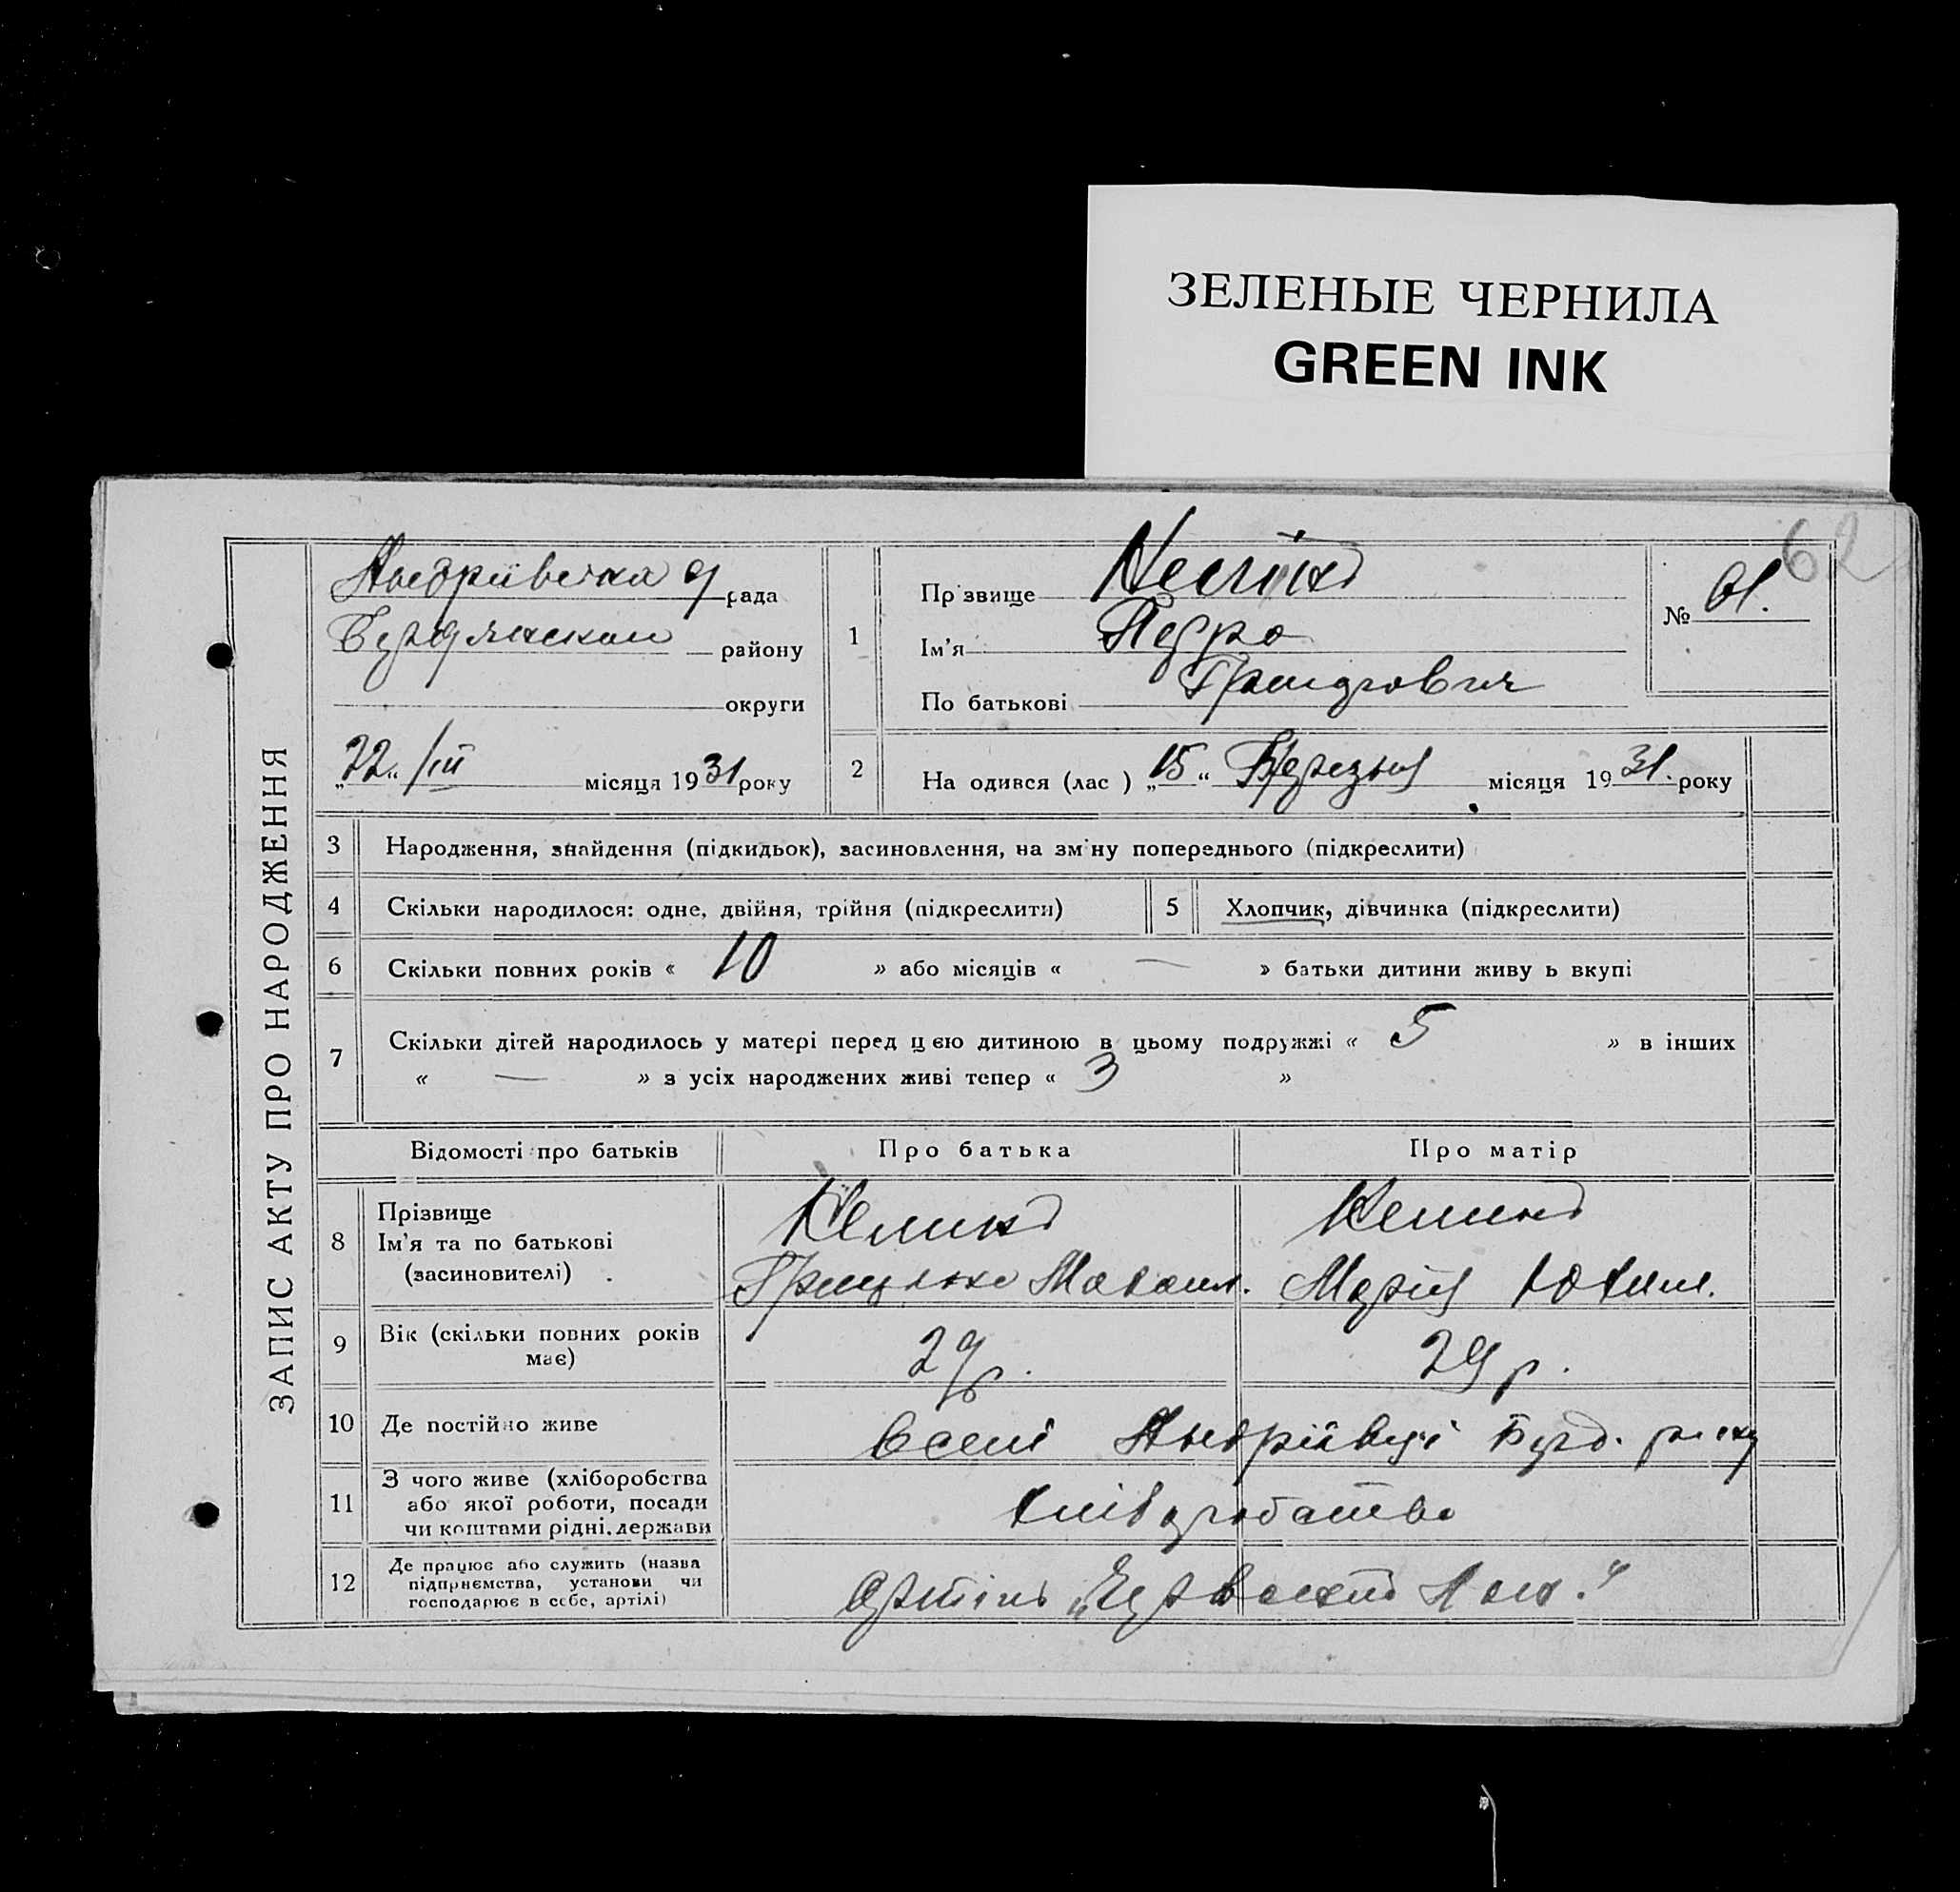 ЗЕЛЕНЫЕ ЧЕРНИЛА
GREEN INK
62
ЗАПИС АКТУ ПРО НАРОДЖЕННЯ
Андріївська рада
району
округи
"22" /III місяця 1931 року
1
Пр звище
Ім'я Педро
По батькові Грицкович
№ 61.
2 На одився (лас ) "15" Березня місяця 1931. року
3 Народження, знайдення (підкидьок), засиновлення, на зм ну попереднього (підкреслити)
4 Скільки народилося: одне, двійня, трійня (підкреслити)
5 Хлопчик, дівчинка (підкреслити)
6 Скільки повних років « 10 » або місяців « — » батьки дитини живу ь вкупі
7 Скільки дітей народилось у матері перед цією дитиною в цьому подружжі « 5 » в інших
« — » з усіх народжених живі тепер « 3 »
Відомості про батьків Про батька Про матір
8 Прізвище
Ім'я та по батькові
(засиновителі)
Грицько Марія Юхим.
9 Вік (скільки повних років
має)
29 р. 29 р.
10 Де постійно живе
в селі Андріївці Берд. р-ну
11 З чого живе (хліборобства
або якої роботи, посади
чи коштами рідні, держави
хліборобство
12 Де працює або служить (назва
підприємства, установи чи
господарює в себе, артілі)
Артіль „Червоний